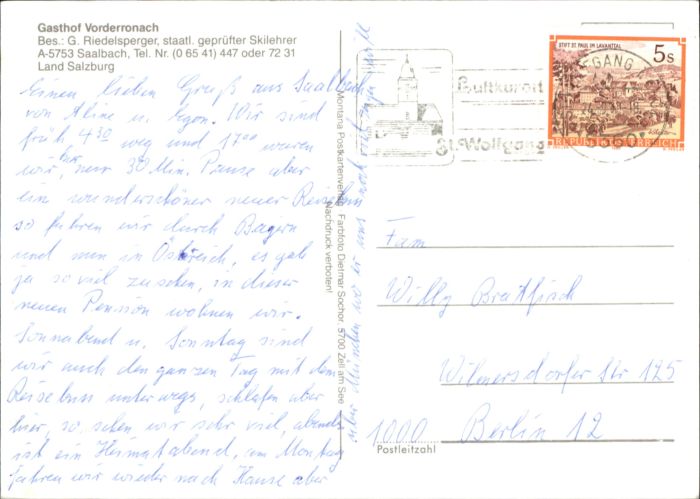 Gasthof Vorderronach
Bes.: G. Riedelsperger, staatl. geprüfter Skilehrer
A-5753 Saalbach, Tel. Nr. (0 65 41) 447 oder 72 31
Land Salzburg
Einen lieben Gruß aus Saalbach
von Aline u. Egon. Wir sind
früh 4 30 weg und 17 00 waren
wir hier, nur 30 Min. Pause aber
ein wunderschöner neuer Reisebus
so fuhren wir durch Bayern
und nun in Östreich, es gab
ja so viel zu sehen, in dieser
neuen Pension wohnen wir.
Sonnabend u. Sonntag sind
wir auch den ganzen Tag mit dem
Reisebus unterwegs, schlafen aber
hier, so, sehen wir sehr viel, abends
ist ein Heimatabend, am Montag
fahren wir wieder nach Hause aber
über München wo er uns noch zeigen
Montana Postkartenverlag Farbfoto Dietmar Sochor, 5700 Zell am See
Nachdruck verboten!
Luftkurort
St. Wolfgang
STIFT ST. PAUL IM LAVANTTAL
5 S
REPUBLIK ÖSTERREICH
Fam
Willy Breitfisch
Wilmersdorfer Str 125
1000 Berlin 12
Postleitzahl